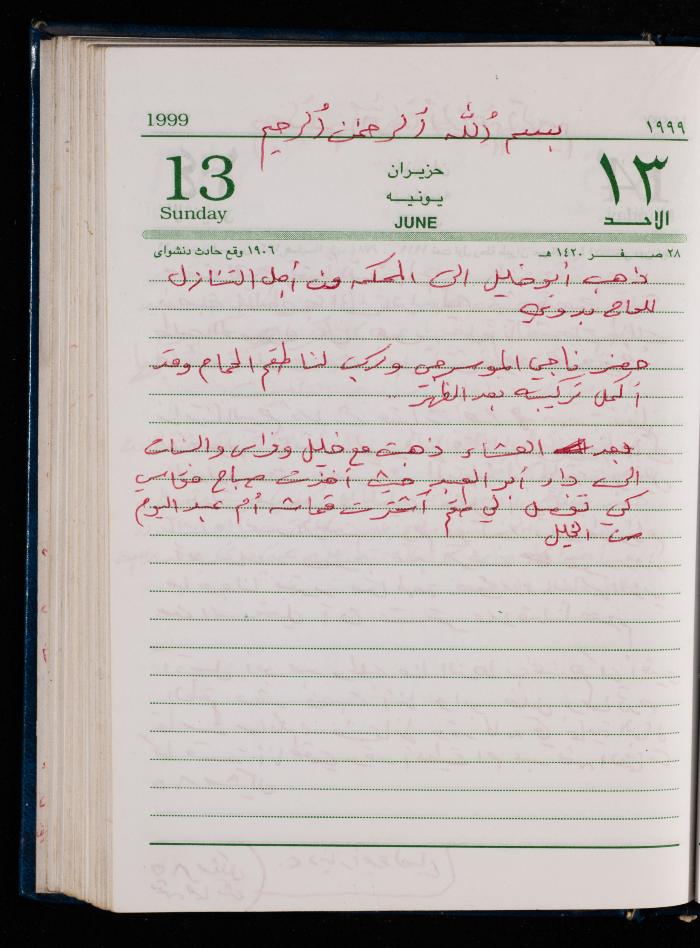 1999
بسم الله الرحمن الرحيم
١٩٩٩
13
Sunday
حزيران
يونيــه
JUNE
١٣
الاحــد
٢٨ صــفــر ١٤٢٠ هـ
١٩٠٦ وقع حادث دنشواى
ذهب أبو خليل الى المحكمه من أجل التنازل
للحاج بدوي
حضر ناجي الموسرجي وركب لنا طقم الحمام وقد
أكمل تركيبه بعد الظهر
وبعد العشاء ذهبت مع خليل وفراس والبنات
الى دار أبو العبد حيث أخذت صباح مقاسي
كي تفصل لي طقم أشترت قماشه أم عبد اليوم
من الخليل